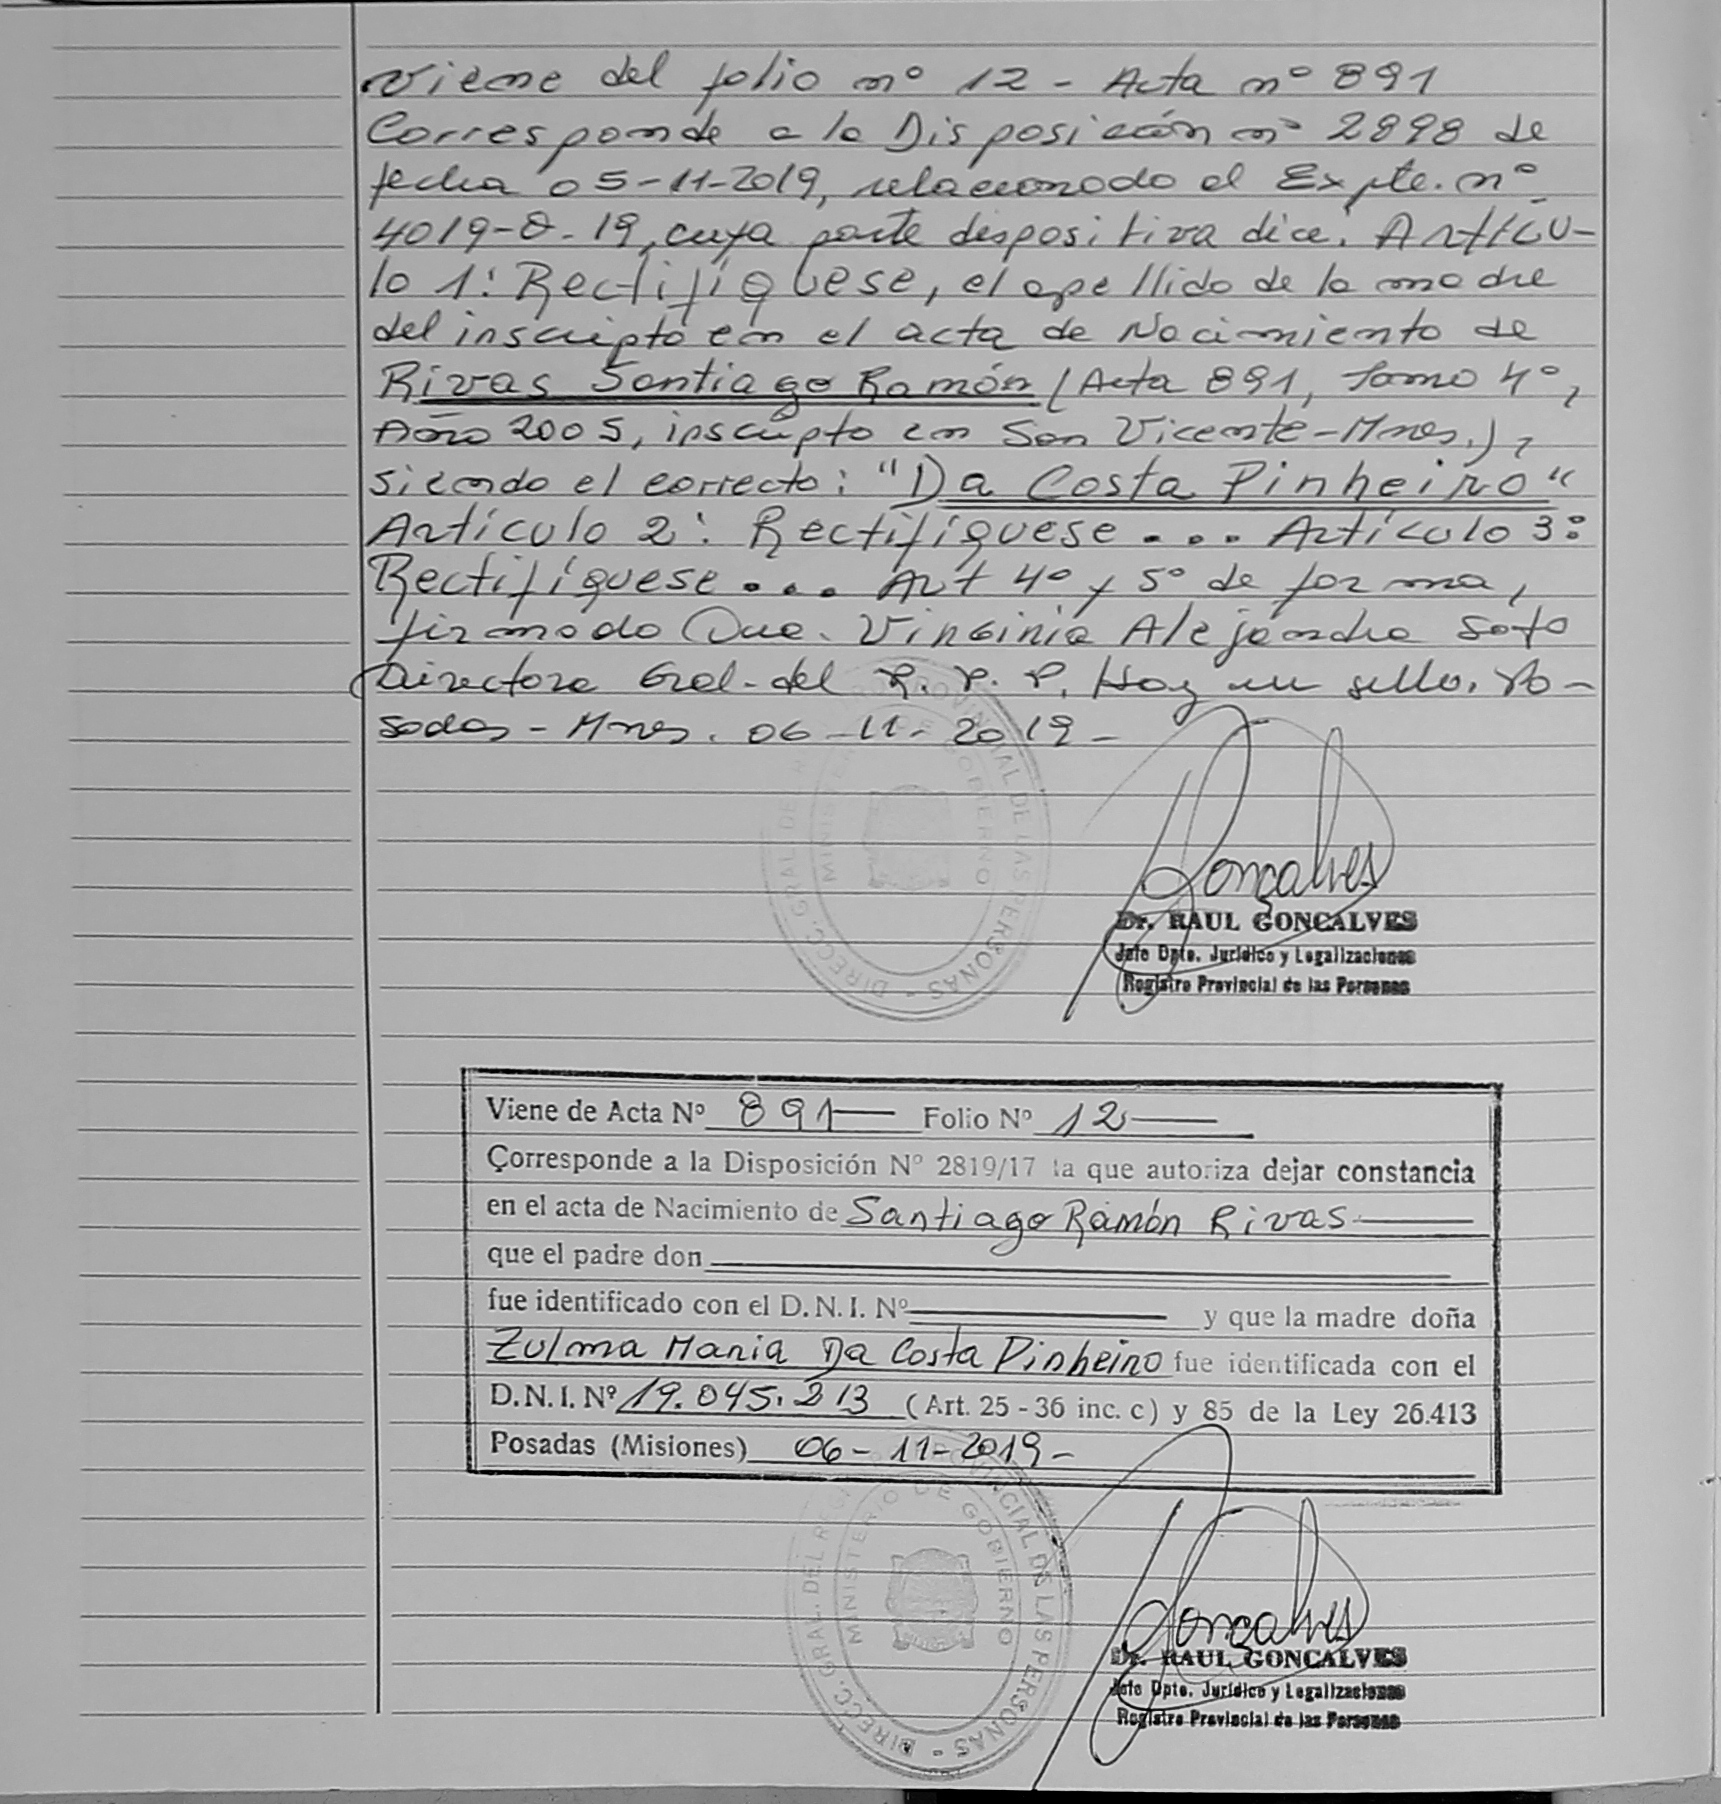 Viene del folio nº 12 - Acta nº 891
Corresponde a la Disposición nº 2898 de
fecha 05-11-2019, relacionado al Expte. nº
4019-D-19, cuya parte dispositiva dice: Artícu-
lo 1: Rectifíquese, el apellido de la madre
del inscripto en el acta de Nacimiento de
Rivas Santiago Ramón (Acta 891, Tomo 4º,
Año 2005, inscripto en San Vicente-Mnes.),
siendo el correcto: "Da Costa Pinheiro"
Artículo 2: Rectifíquese... Artículo 3:
Rectifíquese... Art 4º y 5º de forma,
firmado Dra. Virginia Alejandra Soto
Directora Gral. del R. P. P. Hay un sello. Po-
sadas - Mnes. 06-11-2019-
DIRECC. GRAL. DEL REG. PROVINCIAL DE LAS PERSONAS
MINISTERIO DE GOBIERNO
Gonçalves
Dr. RAUL GONCALVES
Jefe Dpto. Jurídico y Legalizaciones
Registro Provincial de las Personas
Viene de Acta Nº 891 Folio Nº 12
Corresponde a la Disposición Nº 2819/17 la que autoriza dejar constancia
en el acta de Nacimiento de Santiago Ramón Rivas
que el padre don
fue identificado con el D.N.I. Nº y que la madre doña
Zulma Maria Da Costa Pinheiro fue identificada con el
D.N.I. Nº 19.045.213 (Art. 25 - 36 inc. c) y 85 de la Ley 26.413
Posadas (Misiones) 06-11-2019-
DIRECC. GRAL. DEL REG. PROVINCIAL DE LAS PERSONAS
MINISTERIO DE GOBIERNO
Gonçalves
Dr. RAUL GONCALVES
Jefe Dpto. Jurídico y Legalizaciones
Registro Provincial de las Personas